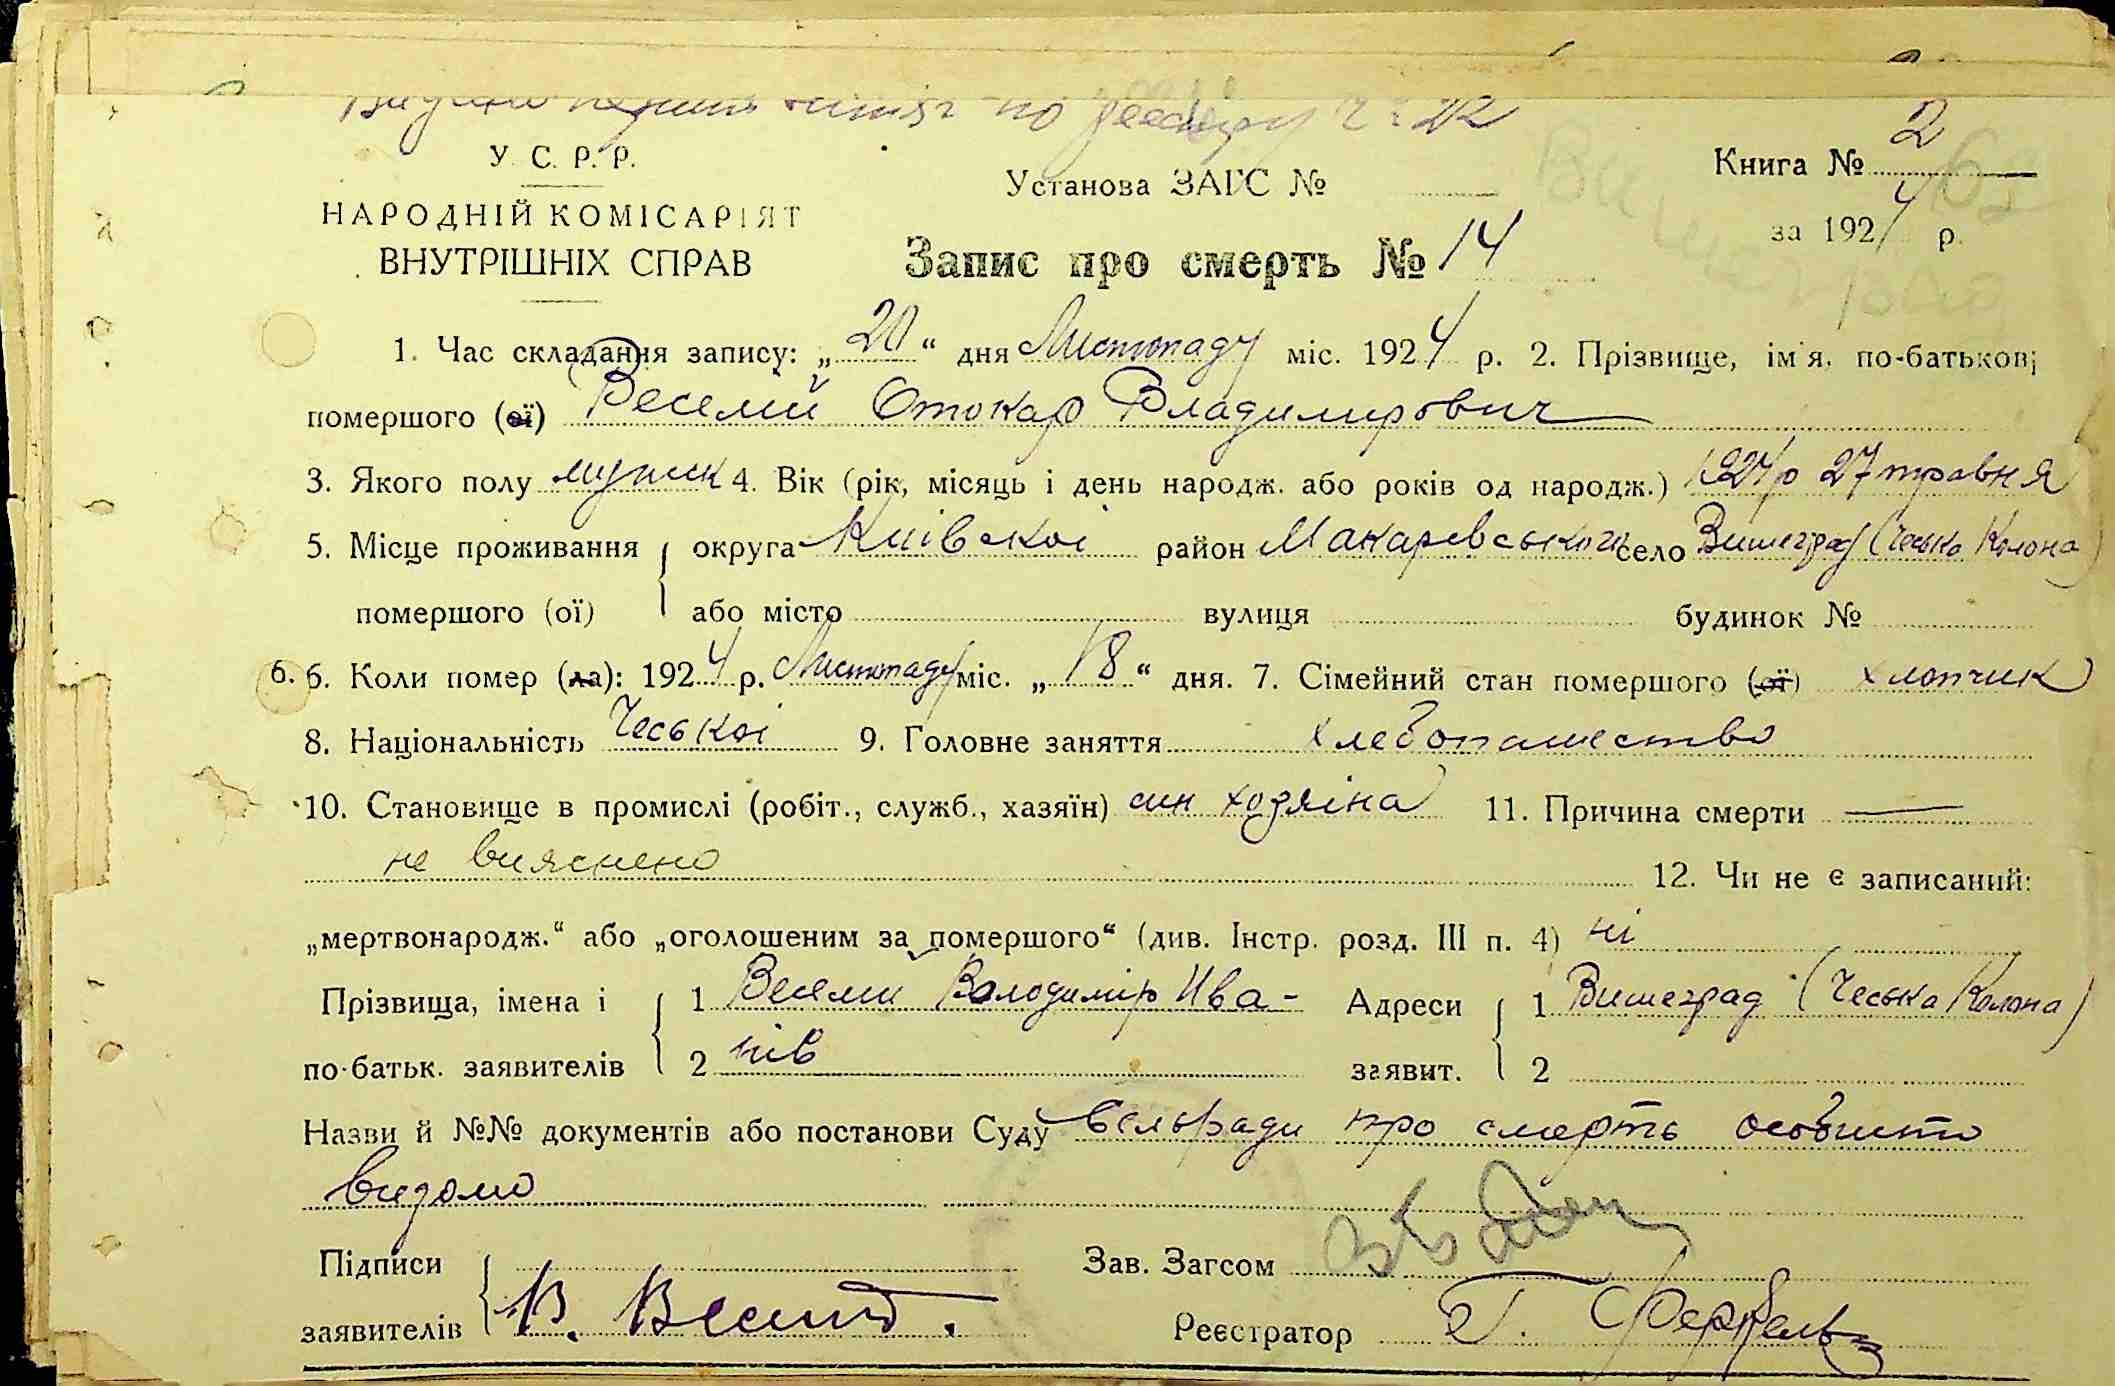 У. С. Р. Р.
НАРОДНІЙ КОМІСАРІЯТ
ВНУТРІШНІХ СПРАВ
Установа ЗАГС №
Книга № 2
за 1924 р.
Запис про смерть № 14
1. Час складання запису: „20“ дня Листопаду міс. 1924 р. 2. Прізвище, ім'я, по-батькові
помершого (ої) Веселий Отокар Владимирович
3. Якого полу мужик 4. Вік (рік, місяць і день народж. або років од народж.) 1924р 27 травня
5. Місце проживання округа Київскоі район Макаревського село Вишеград (Чеська Колона)
помершого (ої) або місто вулиця будинок №
6. 6. Коли помер (ла): 1924 р. Листопаду міс. „18“ дня. 7. Сімейний стан помершого (ої) хлопчик
8. Національність Чеськоі 9. Головне заняття хлебопашество
10. Становище в промислі (робіт., служб., хазяїн) син хозяіна 11. Причина смерти —
не вияснено 12. Чи не є записаний:
„мертвонародж.“ або „оголошеним за помершого“ (див. Інстр. розд. III п. 4) ні
Прізвища, імена і 1 Весели Володимір Ива- Адреси 1 Вишеград (Чеська Колона)
по-батьк. заявителів 2 нів заявит. 2
Назви й №№ документів або постанови Суду сельради про смерть особисто
видомо
Підписи Зав. Загсом
заявителів В. Реєстратор Г.